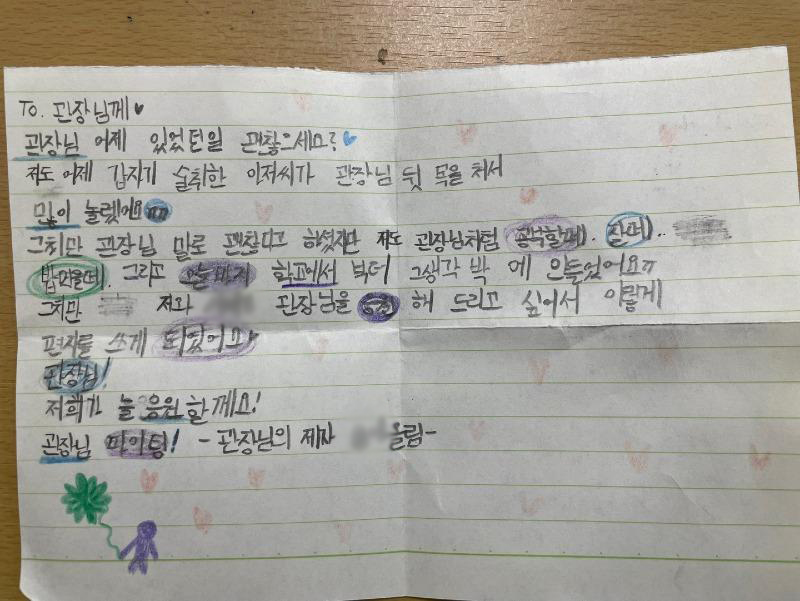 TO. 관장님께♥
관장님 어제 있었던일 괜찮으세요?♥
저도 어제 갑자기 술취한 아저씨가 관장님 뒷 목을 쳐서
많이 놀랬어요ㅠㅠ
그치만 관장님 말로 괜찮다고 하셨지만 저도 관장님처럼 생각할때. 잘때..
밥먹을때. 그리고 학교에서 부터 그생각 박 에 안들었어요ㅠ
그치만 저와 관장님을 응원 해 드리고 싶어서 이렇게
편지를 쓰게 되었어요♥
관장님!
저희가 늘 응원할께요!
관장님 파이팅! -관장님의 제자 올림-